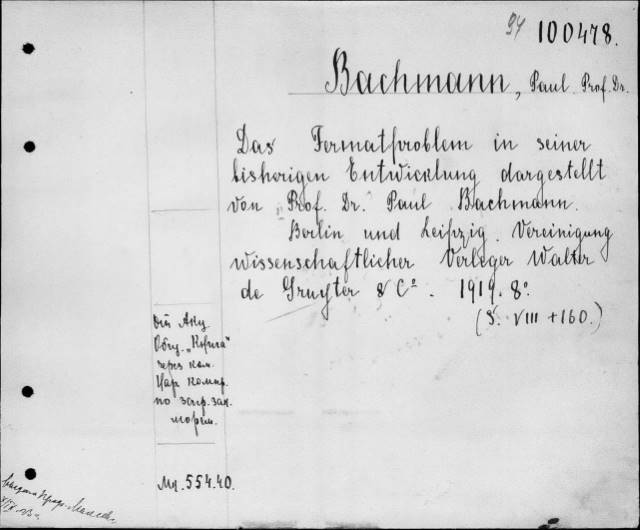 94 100478.
Bachmann, Paul Prof. Dr.
Das Fermatproblem in seiner
bisherigen Entwicklung dargestellt
von Prof. Dr. Paul Bachmann.
Berlin und Leipzig. Vereinigung
wissenschaftlicher Verleger Walter
de Gruyter & Cº. 1919. 8º.
(S. VIII + 160.)
От Акц
Общ. „Книга"
через ком.
Нар комис.
по загр. зак.
Мq. 554.40.